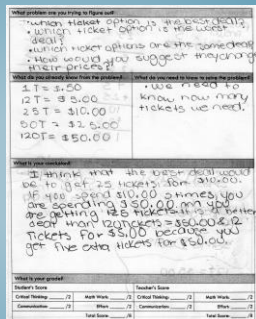 What problem are you trying to figure out?
• which ticket option is the best deal?
• which ticket option is the worst
deal?
• which ticket options are the same deal?
• How would you suggest they change
their prices?
What do you already know from the problem?
What do you need to know to solve the problem?
1 T = $.50
12 T = $5.00
25 T = $10.00
50T = $25.00
120T = $50.00
• we need to
know how many
tickets we need.
What is your conclusion?
I think that the best deal would
be to get 25 tickets for $10.00.
If you spend $10.00 5 times you
are spending $50.00 and you
are getting 125 tickets. It is a better
deal than 120 tickets = $50.00 & 12
tickets for $5.00 because you
get five extra tickets for $50.00.
What is your grade?
Student's Score
Teacher's Score
Critical Thinking: /2 Math Work: /2
Critical Thinking: /2 Math Work: /2
Communication: /2 Effort: /2
Communication: /2 Effort: /2
Total Score: /8
Total Score: /8